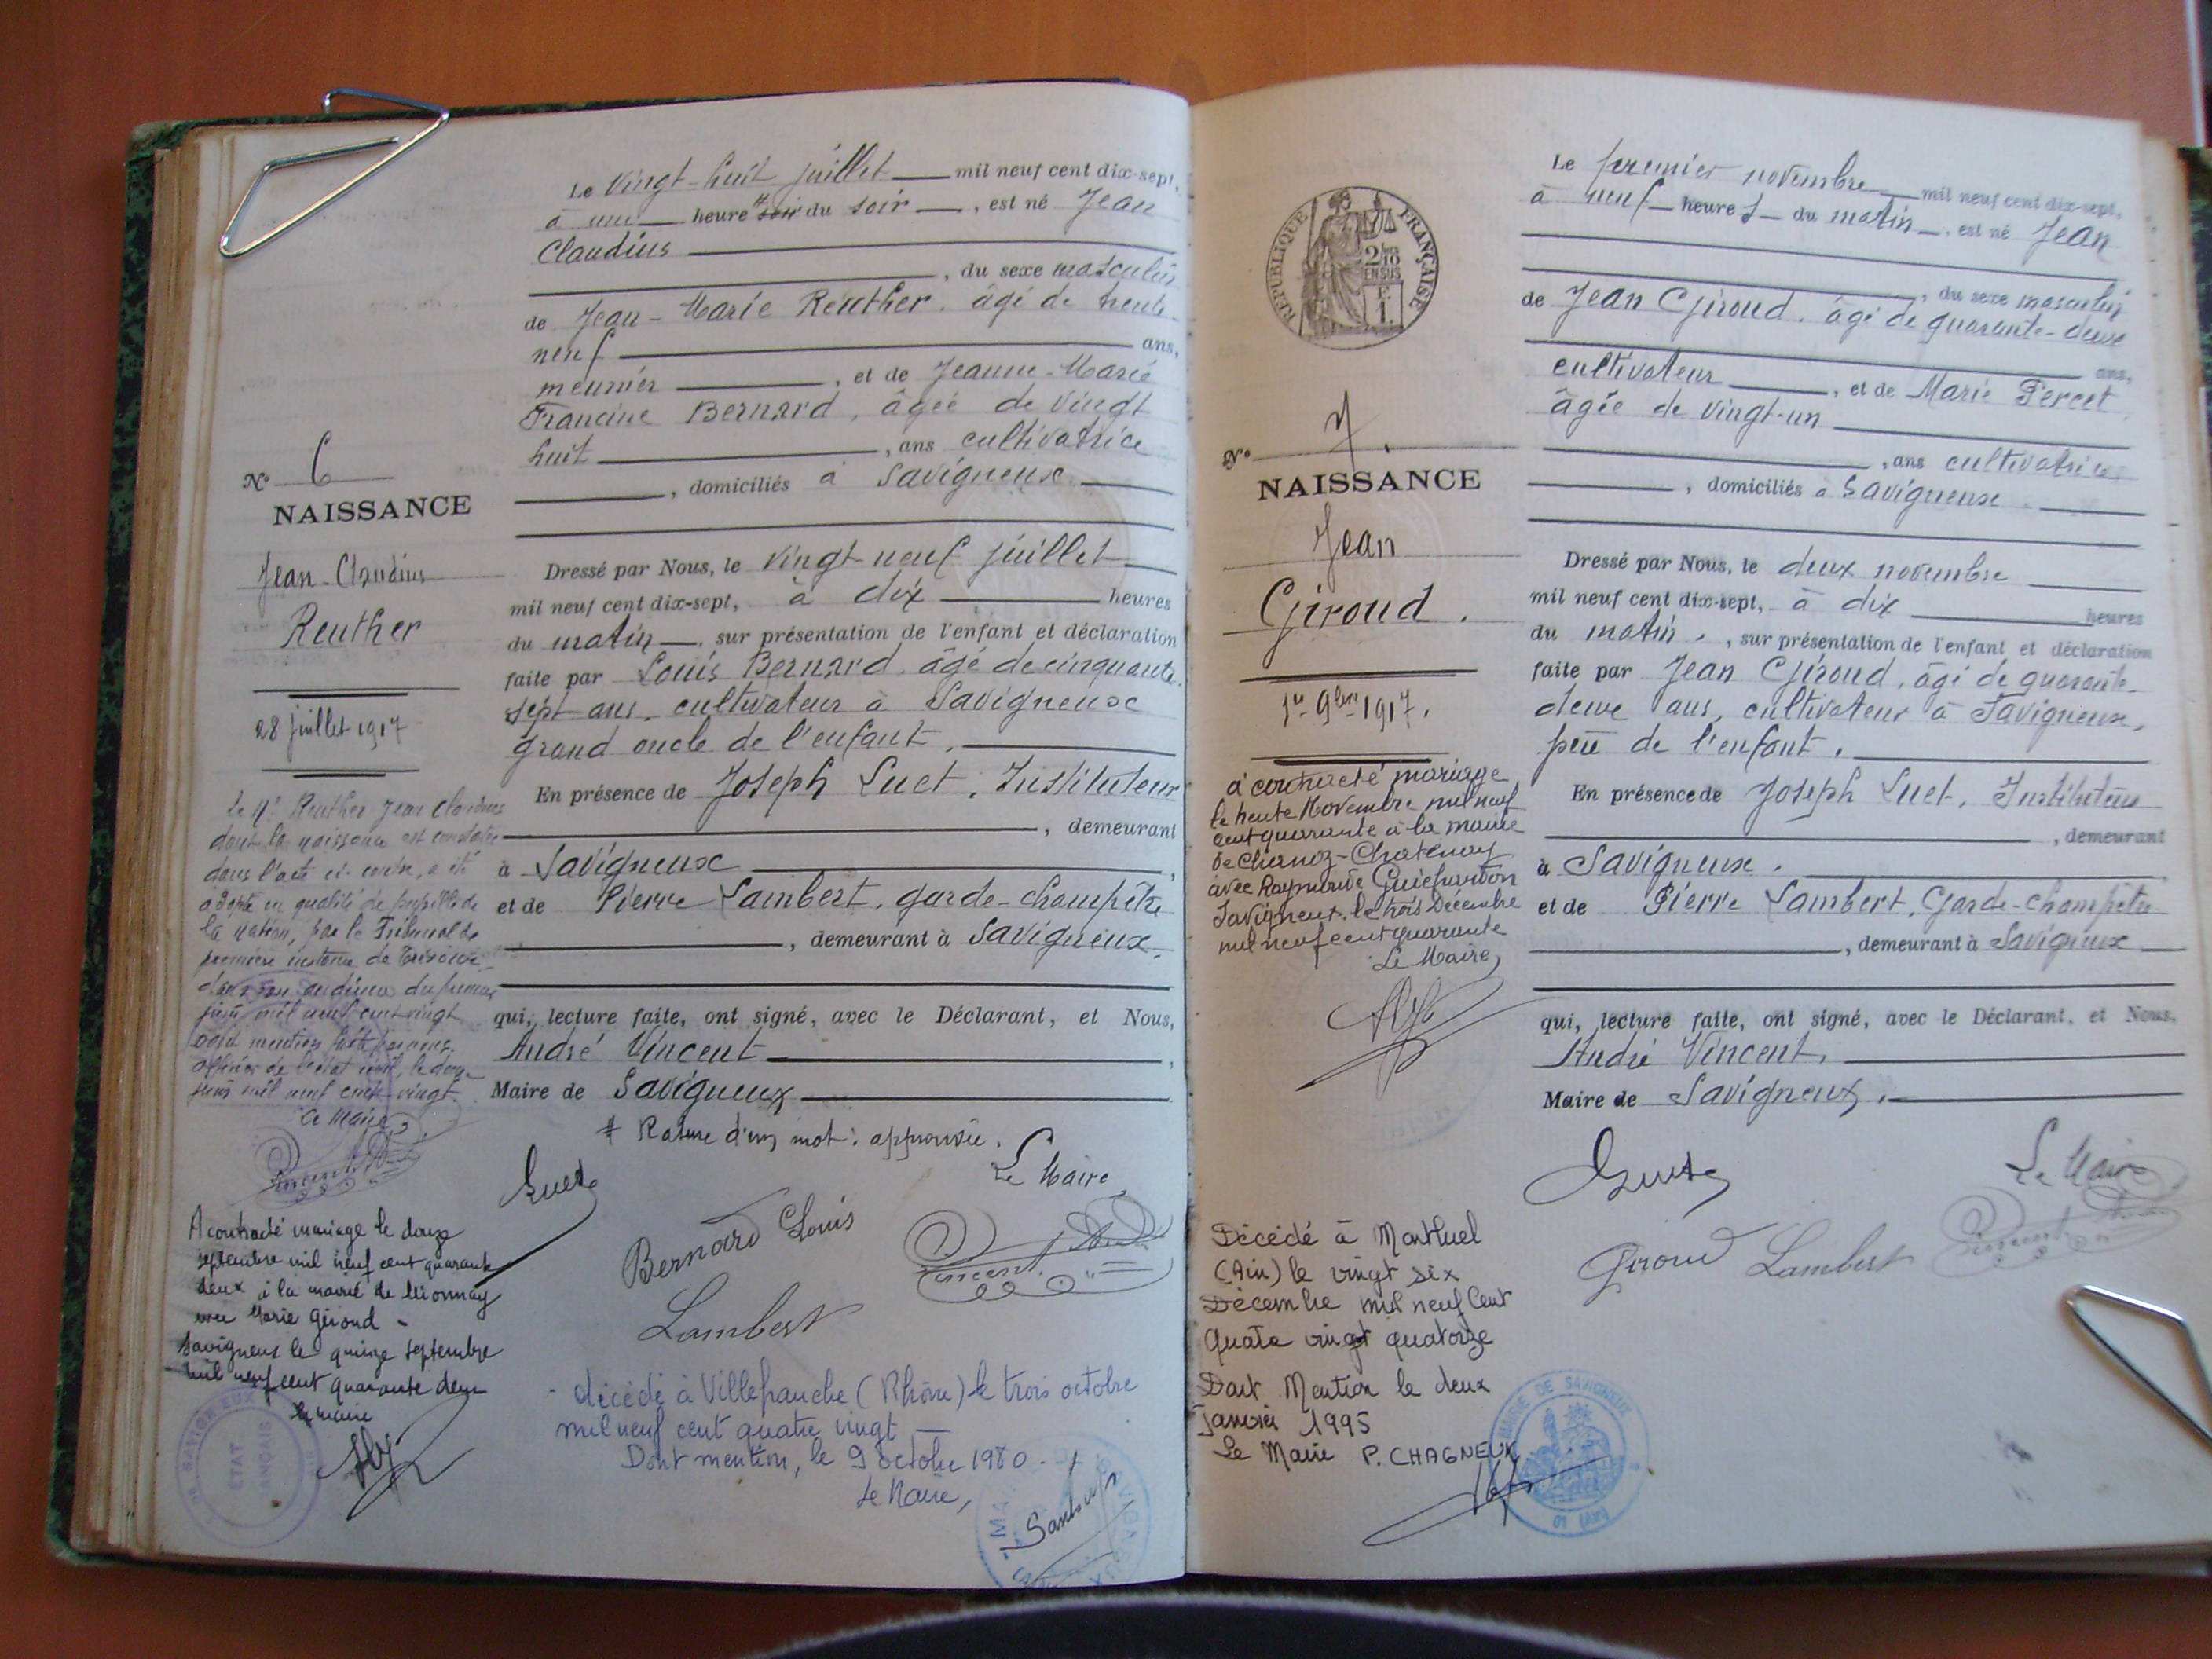 Le vingt-huit juillet mil neuf cent dix-sept,
à une heure # soir du soir, est né Jean
Claudius
, du sexe masculin
de Jean-Marie Reuther, âgé de trente-
neuf ans,
meunier, et de Jeanne-Marie
Francine Bernard, âgée de vingt
huit, ans cultivatrice
, domiciliés à Savigneux
Nº 6
NAISSANCE
Jean-Claudius
Reuther
28 juillet 1917
Dressé par Nous, le vingt-neuf juillet
mil neuf cent dix-sept, à dix heures
du matin, sur présentation de l'enfant et déclaration
faite par Louis Bernard, âgé de cinquante
sept ans, cultivateur à Savigneux
grand oncle de l'enfant.
En présence de Joseph Luet, Instituteur
, demeurant
à Savigneux,
et de Pierre Lambert, garde-champêtre
, demeurant à Savigneux.
qui, lecture faite, ont signé, avec le Déclarant, et Nous,
André Vincent,
Maire de Savigneux
# Rature d'un mot: approuvée.
Le Maire
Luet
Bernard Louis
Vincent
Lambert
le Reuther Jean Claudius
dont la naissance est constatée
dans l'acte ci-contre, a été
adopté en qualité de pupille de
la nation, par le Tribunal de
première instance de Trévoux
dans son audience du premier
juin mil neuf cent vingt
dont mention faite par nous
officier de l'état civil, le
juin mil neuf cent vingt.
Le Maire
Vincent
A contracté mariage le douze
septembre mil neuf cent quarante
deux à la mairie de Mionnay
avec Marie Giroud -
Savigneux le quinze septembre
mil neuf cent quarante deux
le maire
ETAT
FRANÇAIS
- décédé à Villefranche (Rhône) le trois octobre
mil neuf cent quatre vingt
Dont mention, le 9 octobre 1980.
Le Maire,
REPUBLIQUE FRANÇAISE
2/10
EN SUS
1
Le premier novembre mil neuf cent dix-sept,
à neuf heures du matin, est né Jean
, du sexe masculin
de Jean Giroud, âgé de quarante-deux
ans,
cultivateur, et de Marie Percet
âgée de vingt-un
, ans cultivatrice
, domiciliés à Savigneux.
Nº 7.
NAISSANCE
Jean
Giroud.
1er 9bre 1917.
Dressé par Nous, le deux novembre
mil neuf cent dix-sept, à dix heures
du matin, sur présentation de l'enfant et déclaration
faite par Jean Giroud, âgé de quarante-
deux ans, cultivateur à Savigneux,
père de l'enfant.
En présence de Joseph Luet, Instituteur
, demeurant
à Savigneux.
et de Pierre Lambert, Garde-champêtre
, demeurant à Savigneux
qui, lecture faite, ont signé, avec le Déclarant, et Nous,
André Vincent,
Maire de Savigneux.
Luet
Le Maire
Giroud
Lambert
Vincent
a contracté mariage
le trente Novembre mil neuf
cent quarante à la mairie
de Charnoz-Chatenay
avec Raymonde Guichardon
Savigneux, le trois Décembre
mil neuf cent quarante
Le Maire,
Décédé à Montluel
(Ain) le vingt six
Décembre mil neuf Cent
Quatre vingt quatorze
Dont Mention le deux
janvier 1995
Le Maire P. CHAGNEUX
MAIRIE DE SAVIGNEUX
01 (Ain)